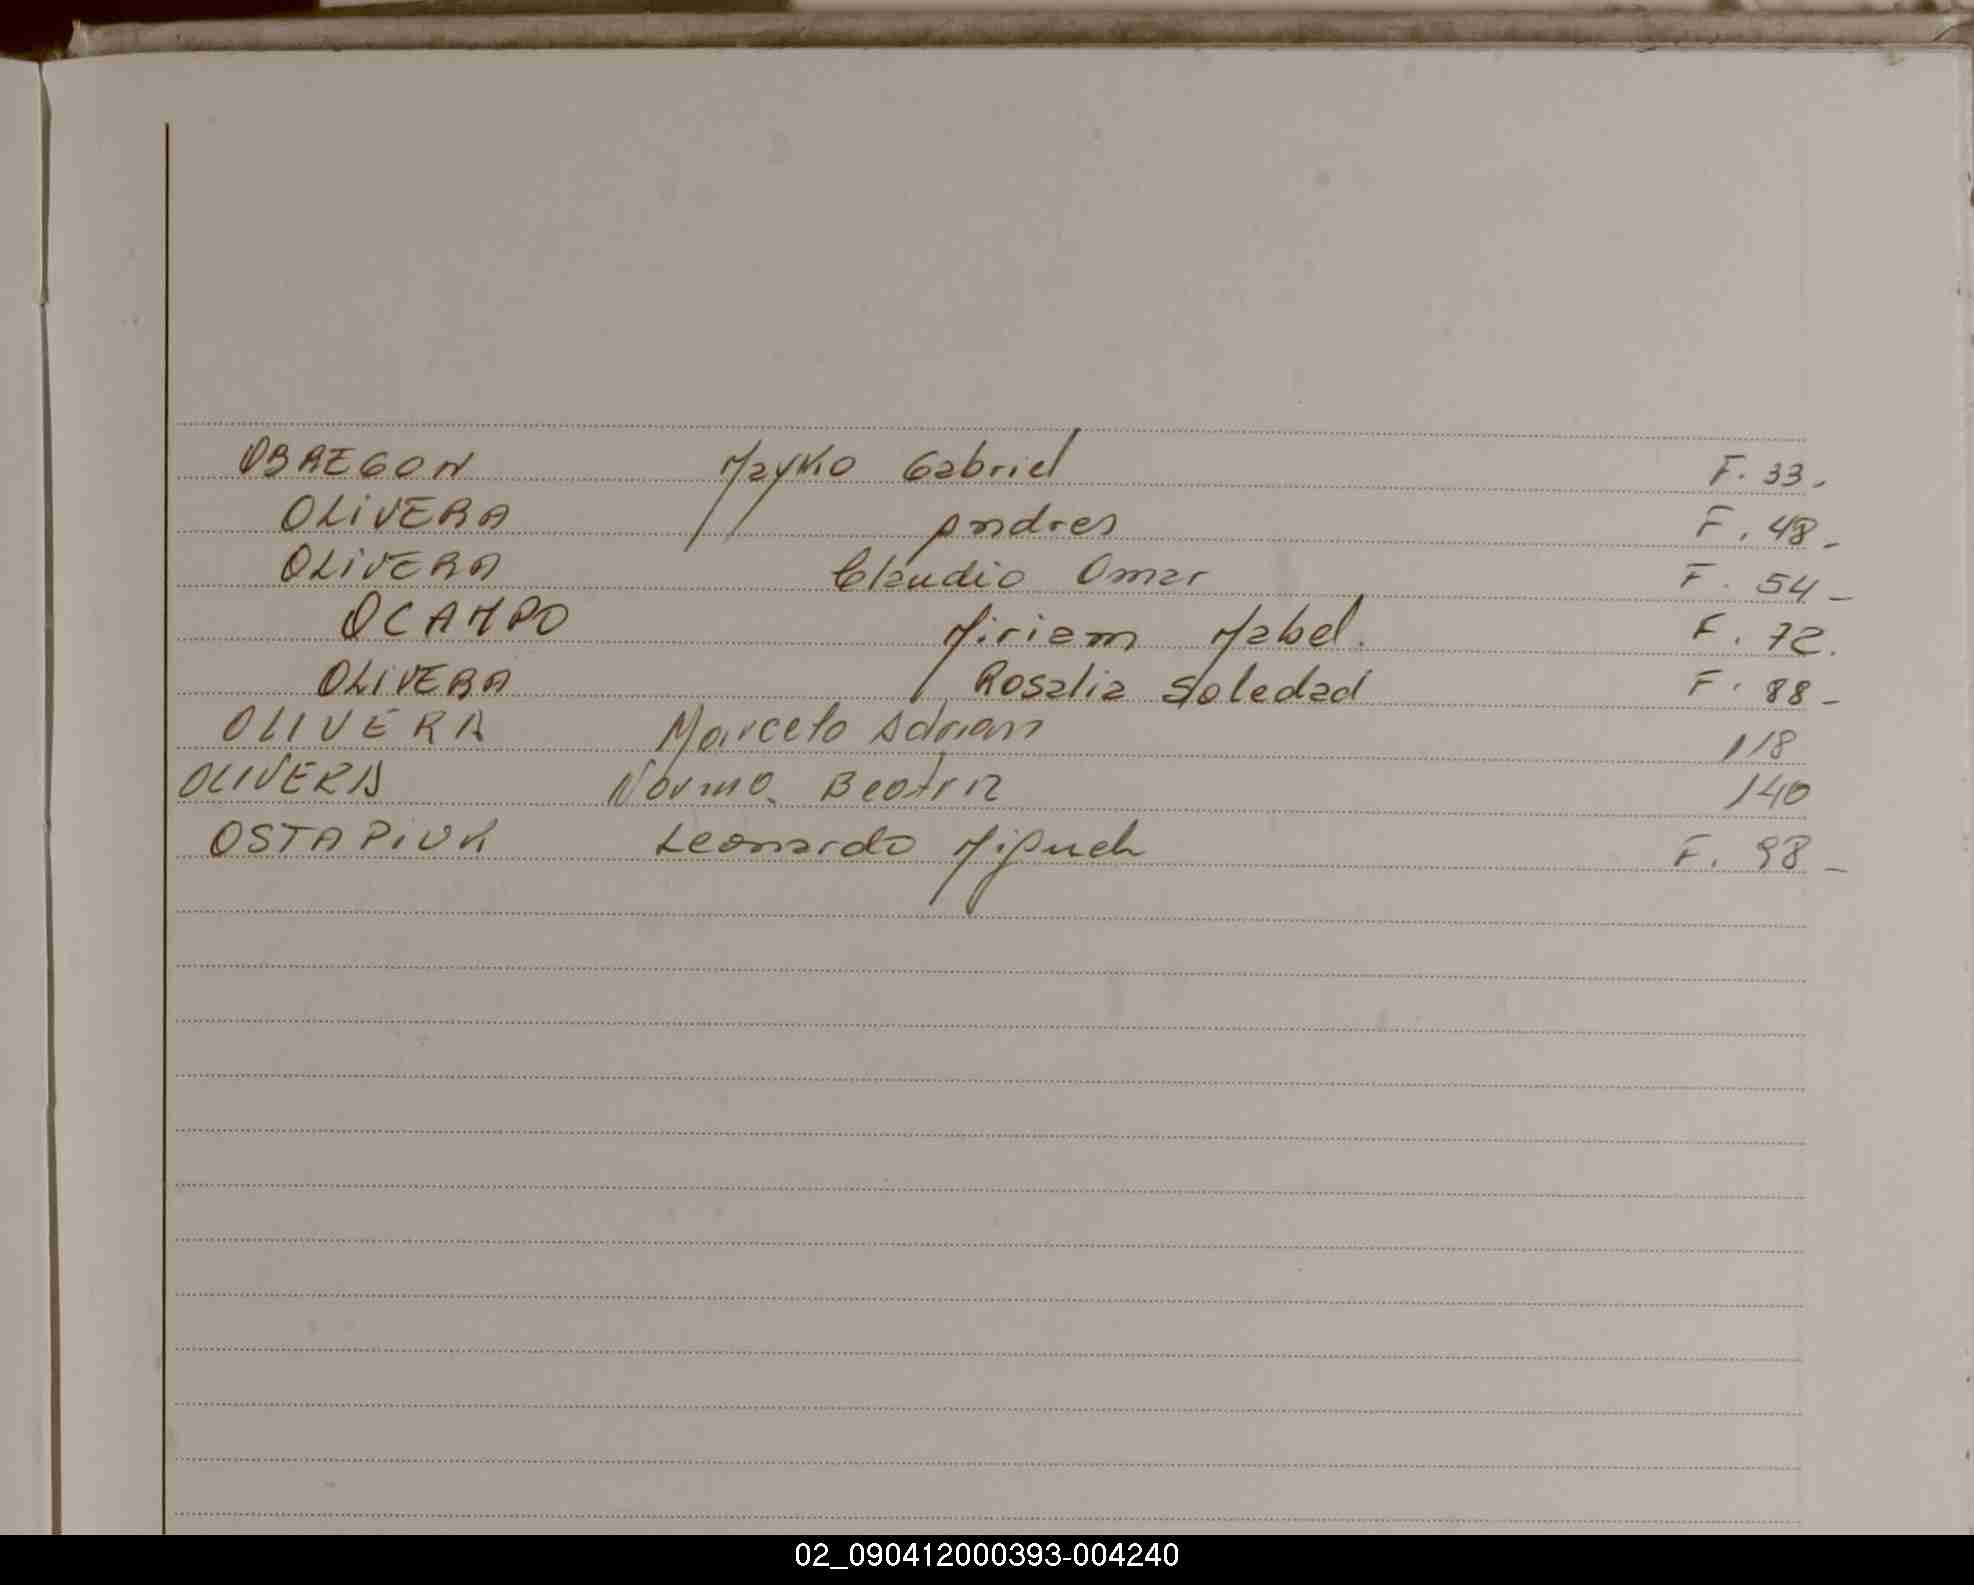 OBREGON Mayko Gabriel F. 33.
OLIVERA Andres F. 48-
OLIVERA Claudio Omar F. 54-
OCAMPO Miriam Mabel. F. 72.
OLIVERA Rosalia Soledad F. 88-
OLIVERA Marcelo Adrian 118
OLIVERA Norma Beatriz 140
OSTAPIUK Leonardo Miguel F. 98-
02_090412000393-004240